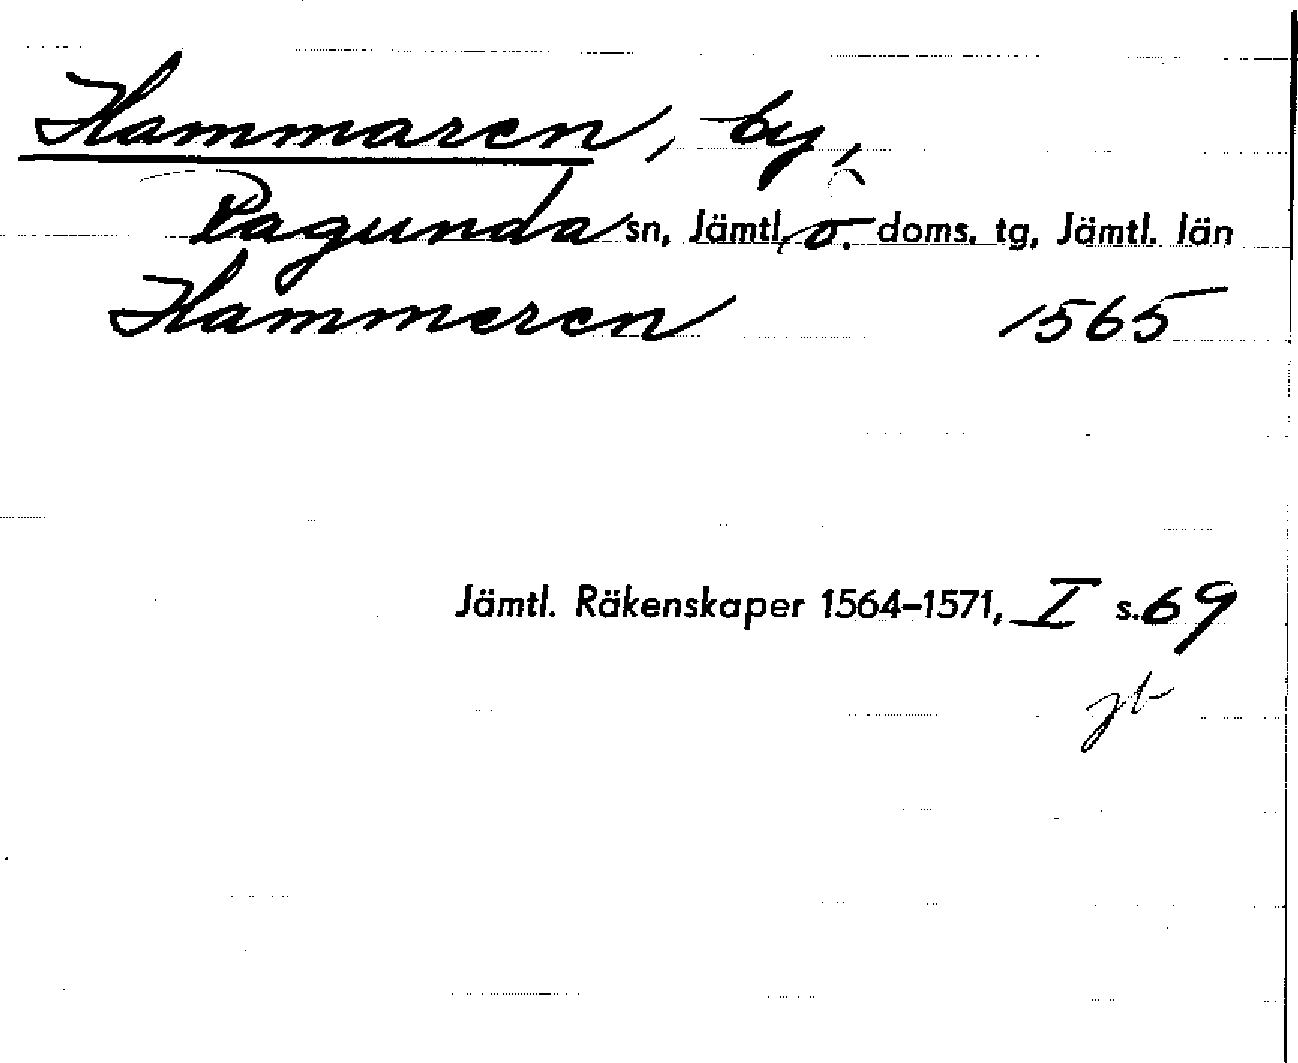 Hammaren, by,
Ragunda sn, Jämtl. ö. doms. tg, Jämtl. län
Hammeren 1565
Jämtl. Räkenskaper 1564–1571, I s. 69